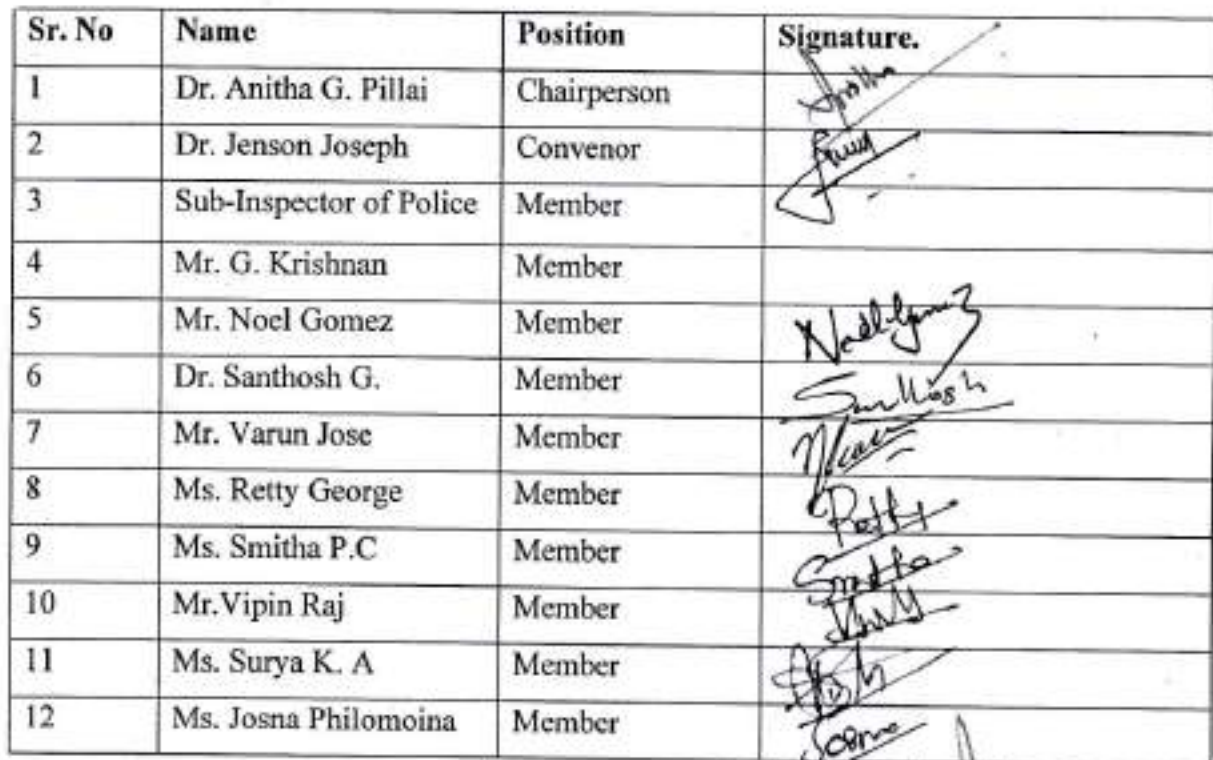 Sr. No Name Position Signature.
1 Dr. Anitha G. Pillai Chairperson Anitha
2 Dr. Jenson Joseph Convenor
3 Sub-Inspector of Police Member
4 Mr. G. Krishnan Member
5 Mr. Noel Gomez Member Noel Gomez
6 Dr. Santhosh G. Member Santhosh
7 Mr. Varun Jose Member
8 Ms. Retty George Member Retty
9 Ms. Smitha P.C Member Smitha
10 Mr.Vipin Raj Member
11 Ms. Surya K. A Member
12 Ms. Josna Philomoina Member Josna